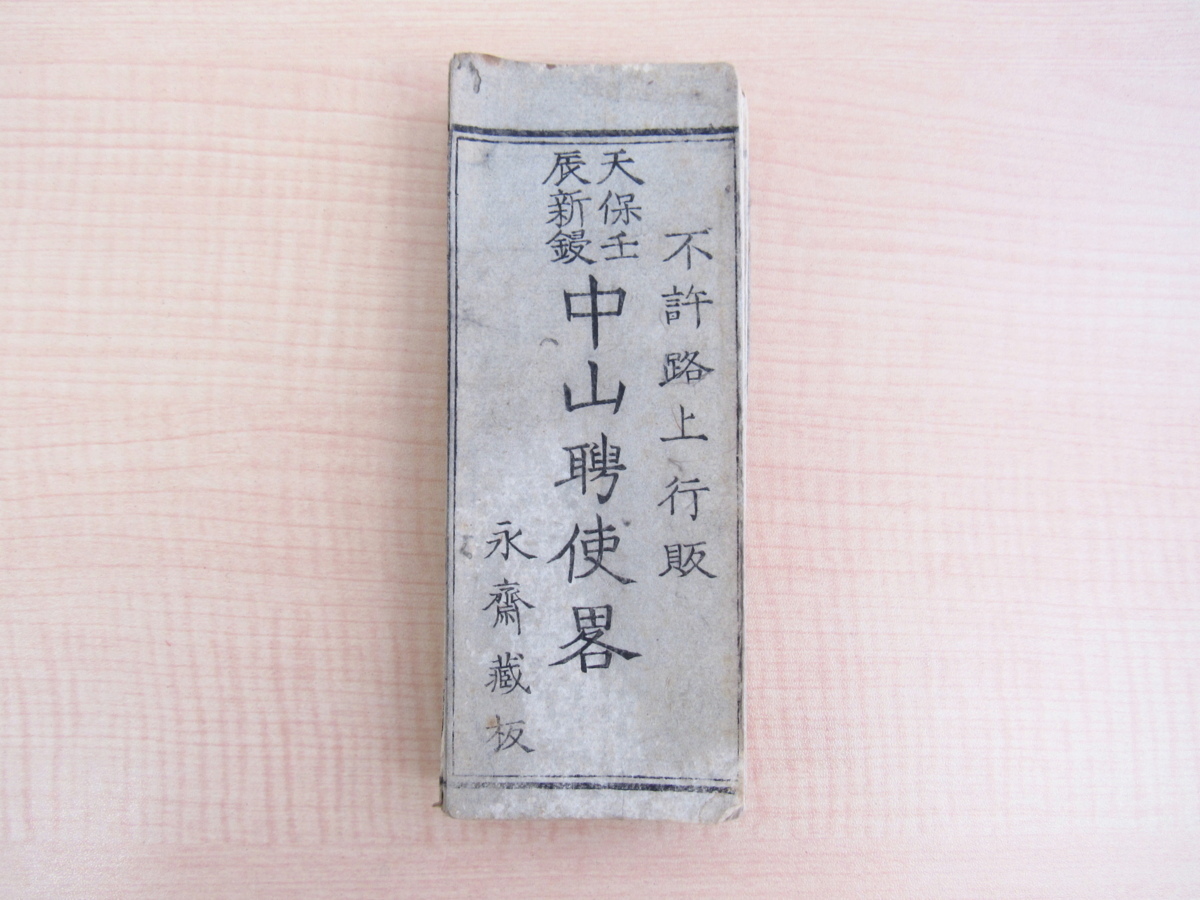 不許路上行販
天保壬
辰新鐫
中山聘使畧
永齋藏板